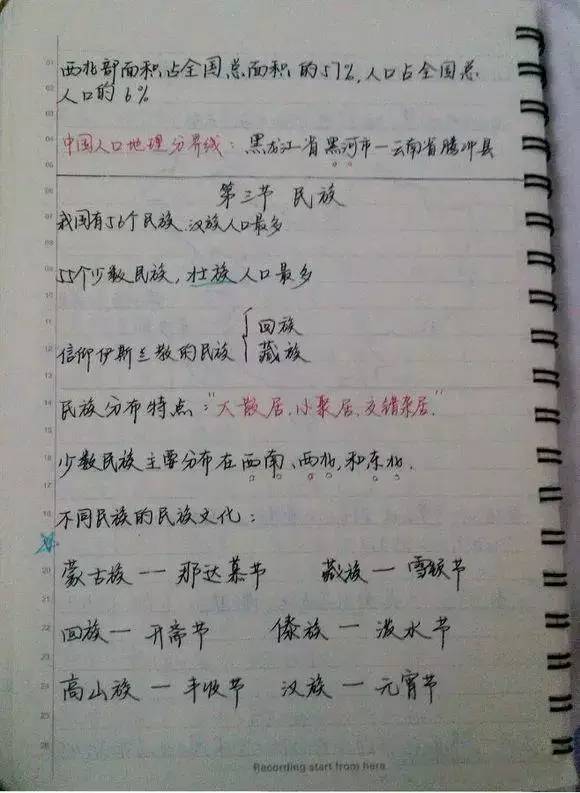 西北部面积占全国总面积的57%,人口占全国总
人口的6%
中国人口地理分界线:黑龙江省黑河市—云南省腾冲县
第三节 民族
我国有56个民族.汉族人口最多
55个少数民族,壮族人口最多
信仰伊斯兰教的民族 回族
藏族
民族分布特点:"大散居、小聚居、交错杂居."
少数民族主要分布在西南、西北,和东北.
不同民族的民族文化:
蒙古族—那达慕节 藏族—雪顿节
回族—开斋节 傣族—泼水节
高山族—丰收节 汉族—元宵节
Recording start from here